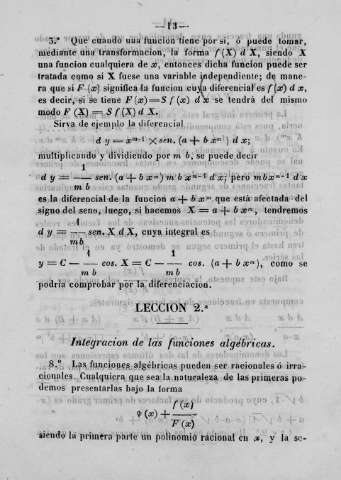 —13—
5.º Que cuando una funcion tiene por sí, ó puede tomar,
mediante una transformacion, la forma f (X) d X, siendo X
una funcion cualquiera de x, entonces dicha funcion puede ser
tratada como si X fuese una variable independiente; de mane-
ra que si F (x) significa la funcion cuya diferencial es f (x) d x,
es decir, si se tiene F (x) = S f (x) d x se tendrá del mismo
modo F (X) = S f (X) d X.
Sirva de ejemplo la diferencial
d y = xᵐ⁻¹ × sen. (a + b xᵐ) d x;
multiplicando y dividiendo por m b, se puede decir
d y = 1/m b sen. (a + b xᵐ) m b xᵐ⁻¹ d x; pero m b xᵐ⁻¹ d x
es la diferencial de la funcion a + b xᵐ que está afectada del
signo del seno, luego, si hacemos X = a + b xᵐ, tendremos
d y = 1/m b sen. X d X, cuya integral es
y = C — 1/m b cos. X = C — 1/m b cos. (a + b xᵐ), como se
podria comprobar por la diferenciacion.
LECCION 2.ª
Integracion de las funciones algébricas.
8.º Las funciones algébricas pueden ser racionales ó irra-
cionales. Cualquiera que sea la naturaleza de las primeras po-
demos presentarlas bajo la forma
φ (x) + f (x)/F (x)
siendo la primera parte un polinomio racional en x, y la se-